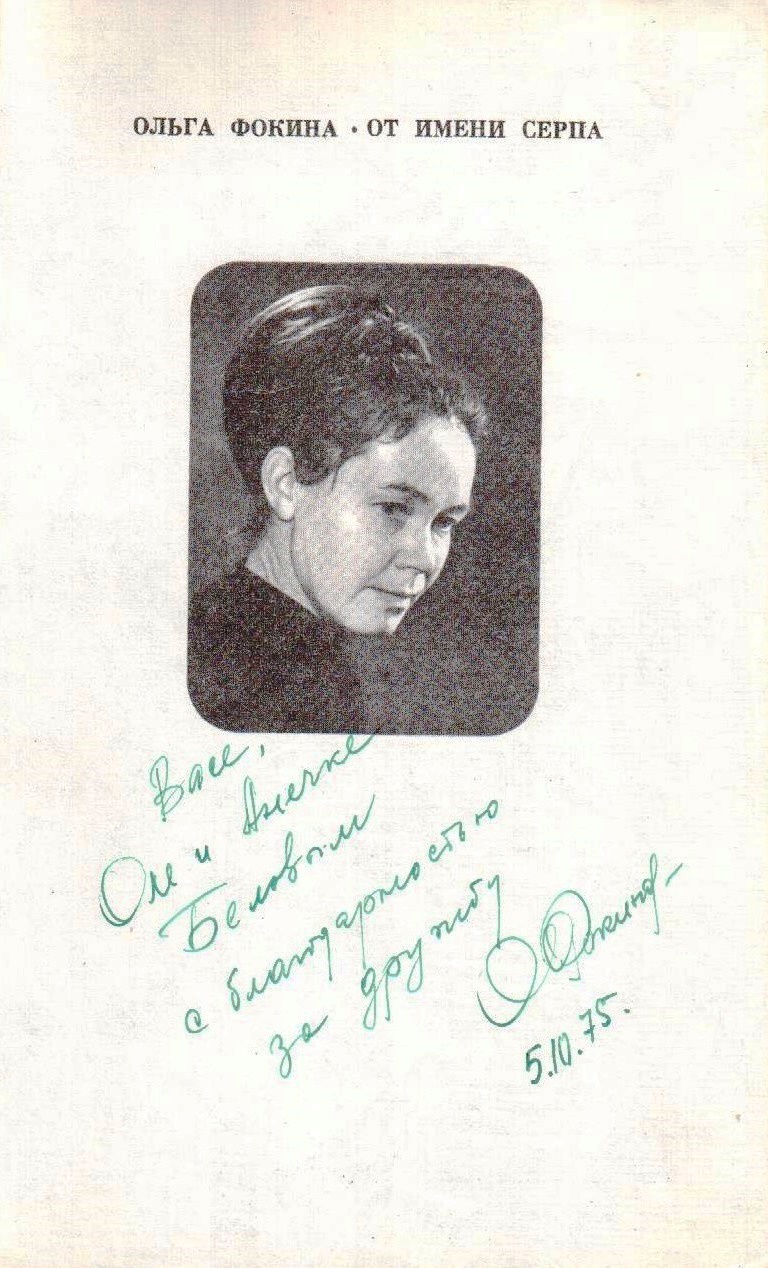 ОЛЬГА ФОКИНА • ОТ ИМЕНИ СЕРПА
Васе,
Оле и Анечке
Беловым
с благодарностью
за дружбу
О Фокина
5.10.75.